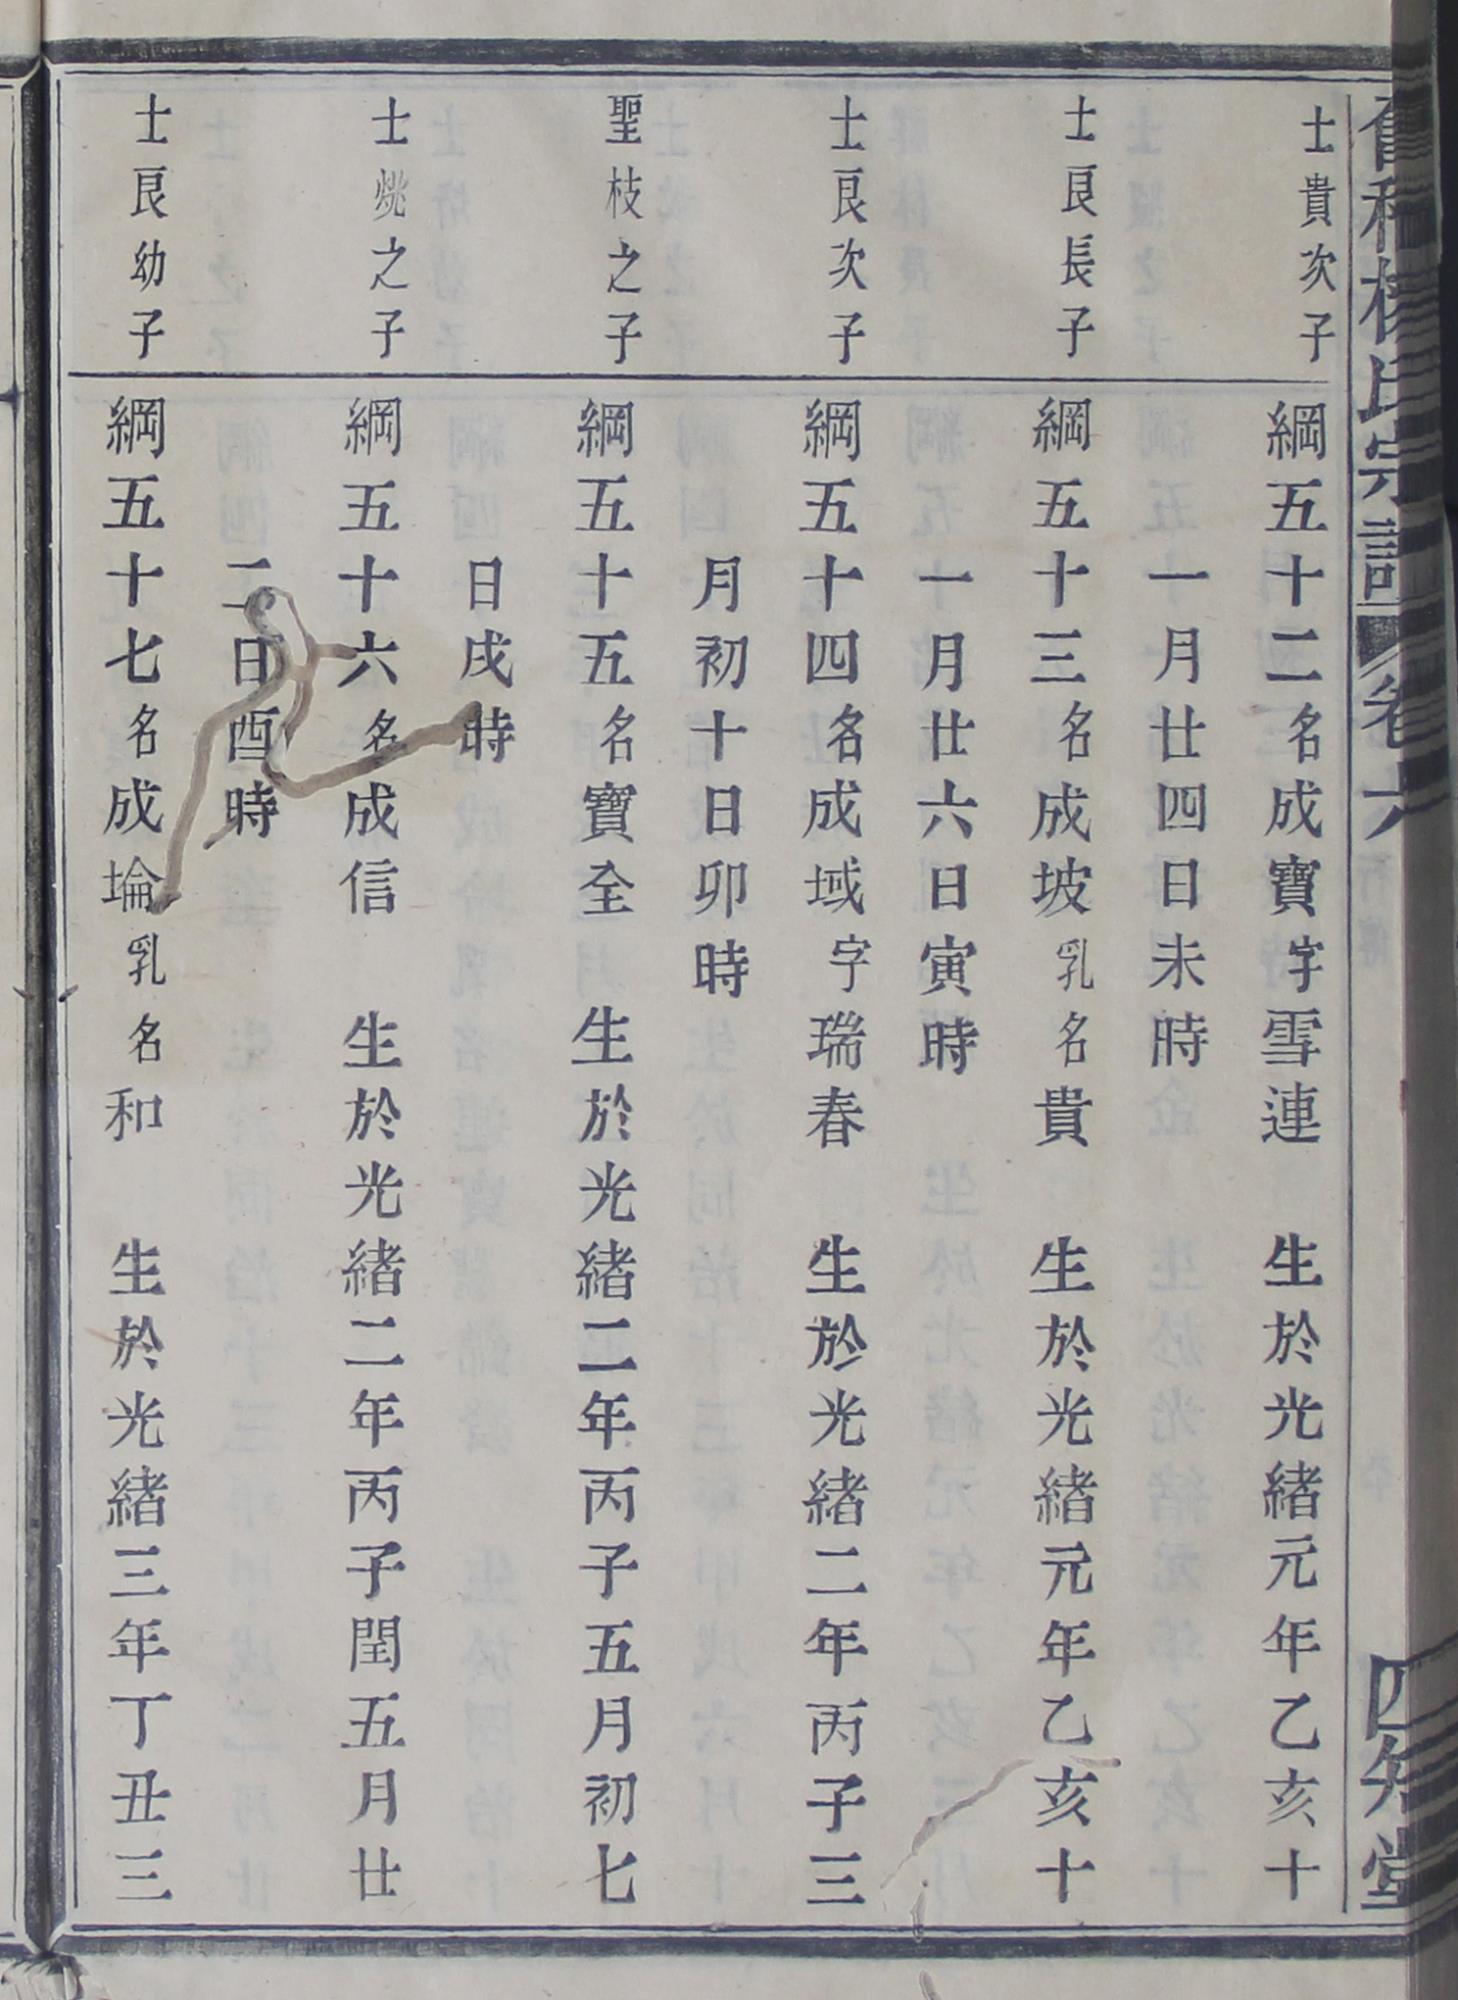 楊氏宗譜 卷六 四知堂
士貴次子
綱五十二名成寶字雪連 生於光緒元年乙亥十
一月廿四日未時
士良長子
綱五十三名成坡乳名貴 生於光緒元年乙亥十
一月廿六日寅時
士良次子
綱五十四名成域字瑞春 生於光緒二年丙子三
月初十日卯時
聖枝之子
綱五十五名寶全 生於光緒二年丙子五月初七
日戌時
士烑之子
綱五十六名成信 生於光緒二年丙子閏五月廿
二日酉時
士良幼子
綱五十七名成埨乳名和 生於光緒三年丁丑三